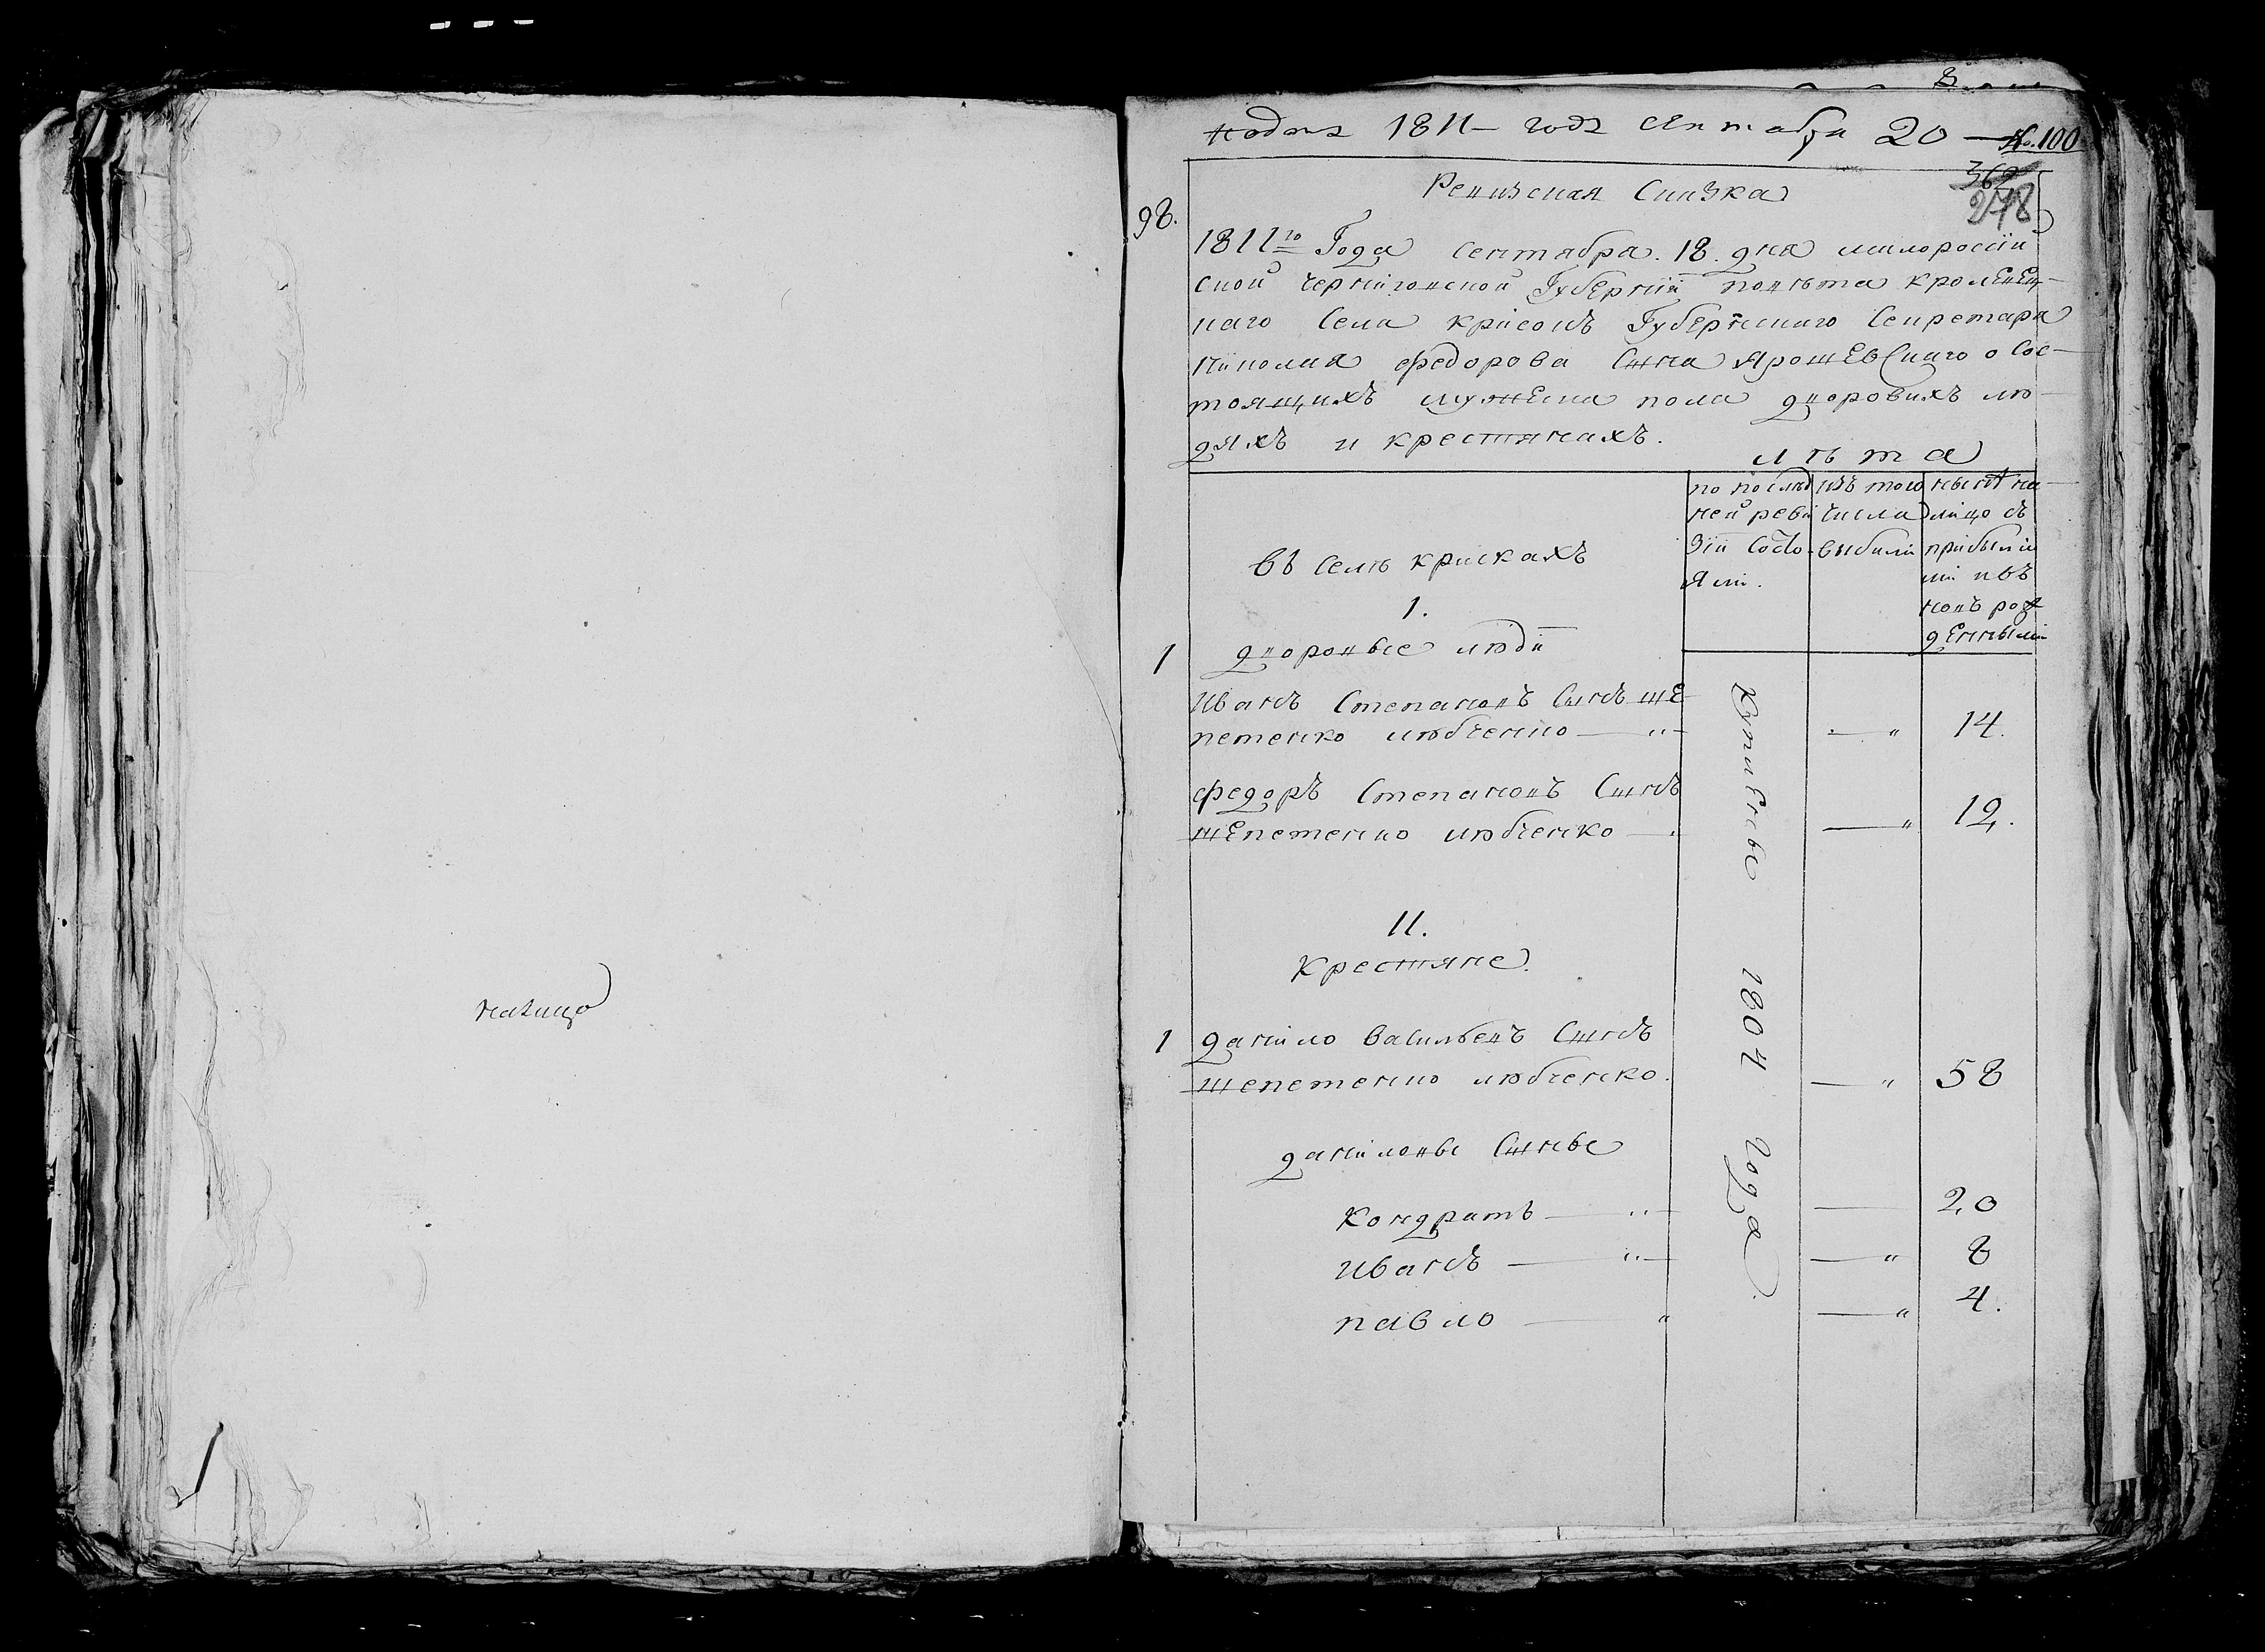 налицо
подана 1811 года сентабря 20
№ 100
362
278
98.
Ревизская Сказка
1811го Года сентября. 18. дня малороссій
ской черніговской Губерніи повѣта кролевец
каго села крисокъ Губернскаго Секретаря
николая федорова Сына Ярошевскаго о Сос
тоящихъ мужеска пола дворовихъ лю
дяхъ и крестянахъ.
лѣта
по послѣд
ней реви
зіи Состо
яли.
изъ того
числа
выбили
нынѣ на
лицо съ
прибылы
ми и въ
новъ рож
денными
въ селѣ крискахъ
1.
1 дворовые люди
Иванъ Степановъ Сынъ ше
петенко любченко — " 14.
федоръ Степановъ Сынъ
шепетенко любченко — " 12.
Купленые 1804 Года
11.
Крестяне.
1 данило васильевъ Сынъ
шепетенко любченко. — " 58
даниловы Сыны
Кондратъ — 20
иванъ — " 8
павло — " 4.